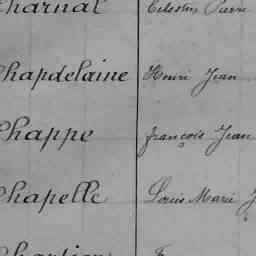 Charnal Célestin Pierre
Chapdelaine Henri Jean
Chappe françois Jean
Chapelle Louis Marie